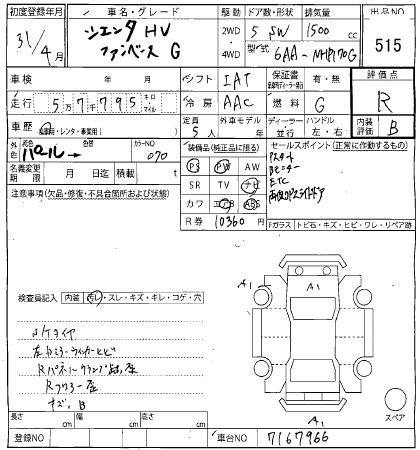 初度登録年月 車名・グレード 駆動 ドア数・形状 排気量 出品NO
31/4月 シエンタ HV ファンベース G 2WD 4WD 5 SW 1500 cc 515
型式 6AA-NHP170G
車検 年 月 シフト IAT 保証書 有・無 評価点
走行 5万7千795 キロ マイル 冷房 AAC 燃料 G R
車歴 自家用・レンタ・事業用( ) 定員 5人 外車モデル ディーラー 並行 ハンドル 左・右 内装評価 B
外色 元色 パール 色替 カラーNO 070
装備品(純正品に限る) セールスポイント(正常に作動するもの)
名義変更期限 月 日迄 積載 t
PS PW AW
Pスタート
Bモニター
SR TV ナビ
ETC
注意事項(欠品・修復・不具合箇所および状態)
両側Pスライドドア
カワ エアB ABS
R券 10360円
Fガラス トビ石・キズ・ヒビ・ワレ・リペア跡
検査員記入 内装 汚レ・スレ・キズ・キレ・コゲ・穴
A1 A1
Sタイヤ
左ドアミラーウィンカーヒビ
Rフロアー歪
キズ、B
長さ cm 幅 cm 高さ cm
A1
スペア
登録NO 車台NO 7167966